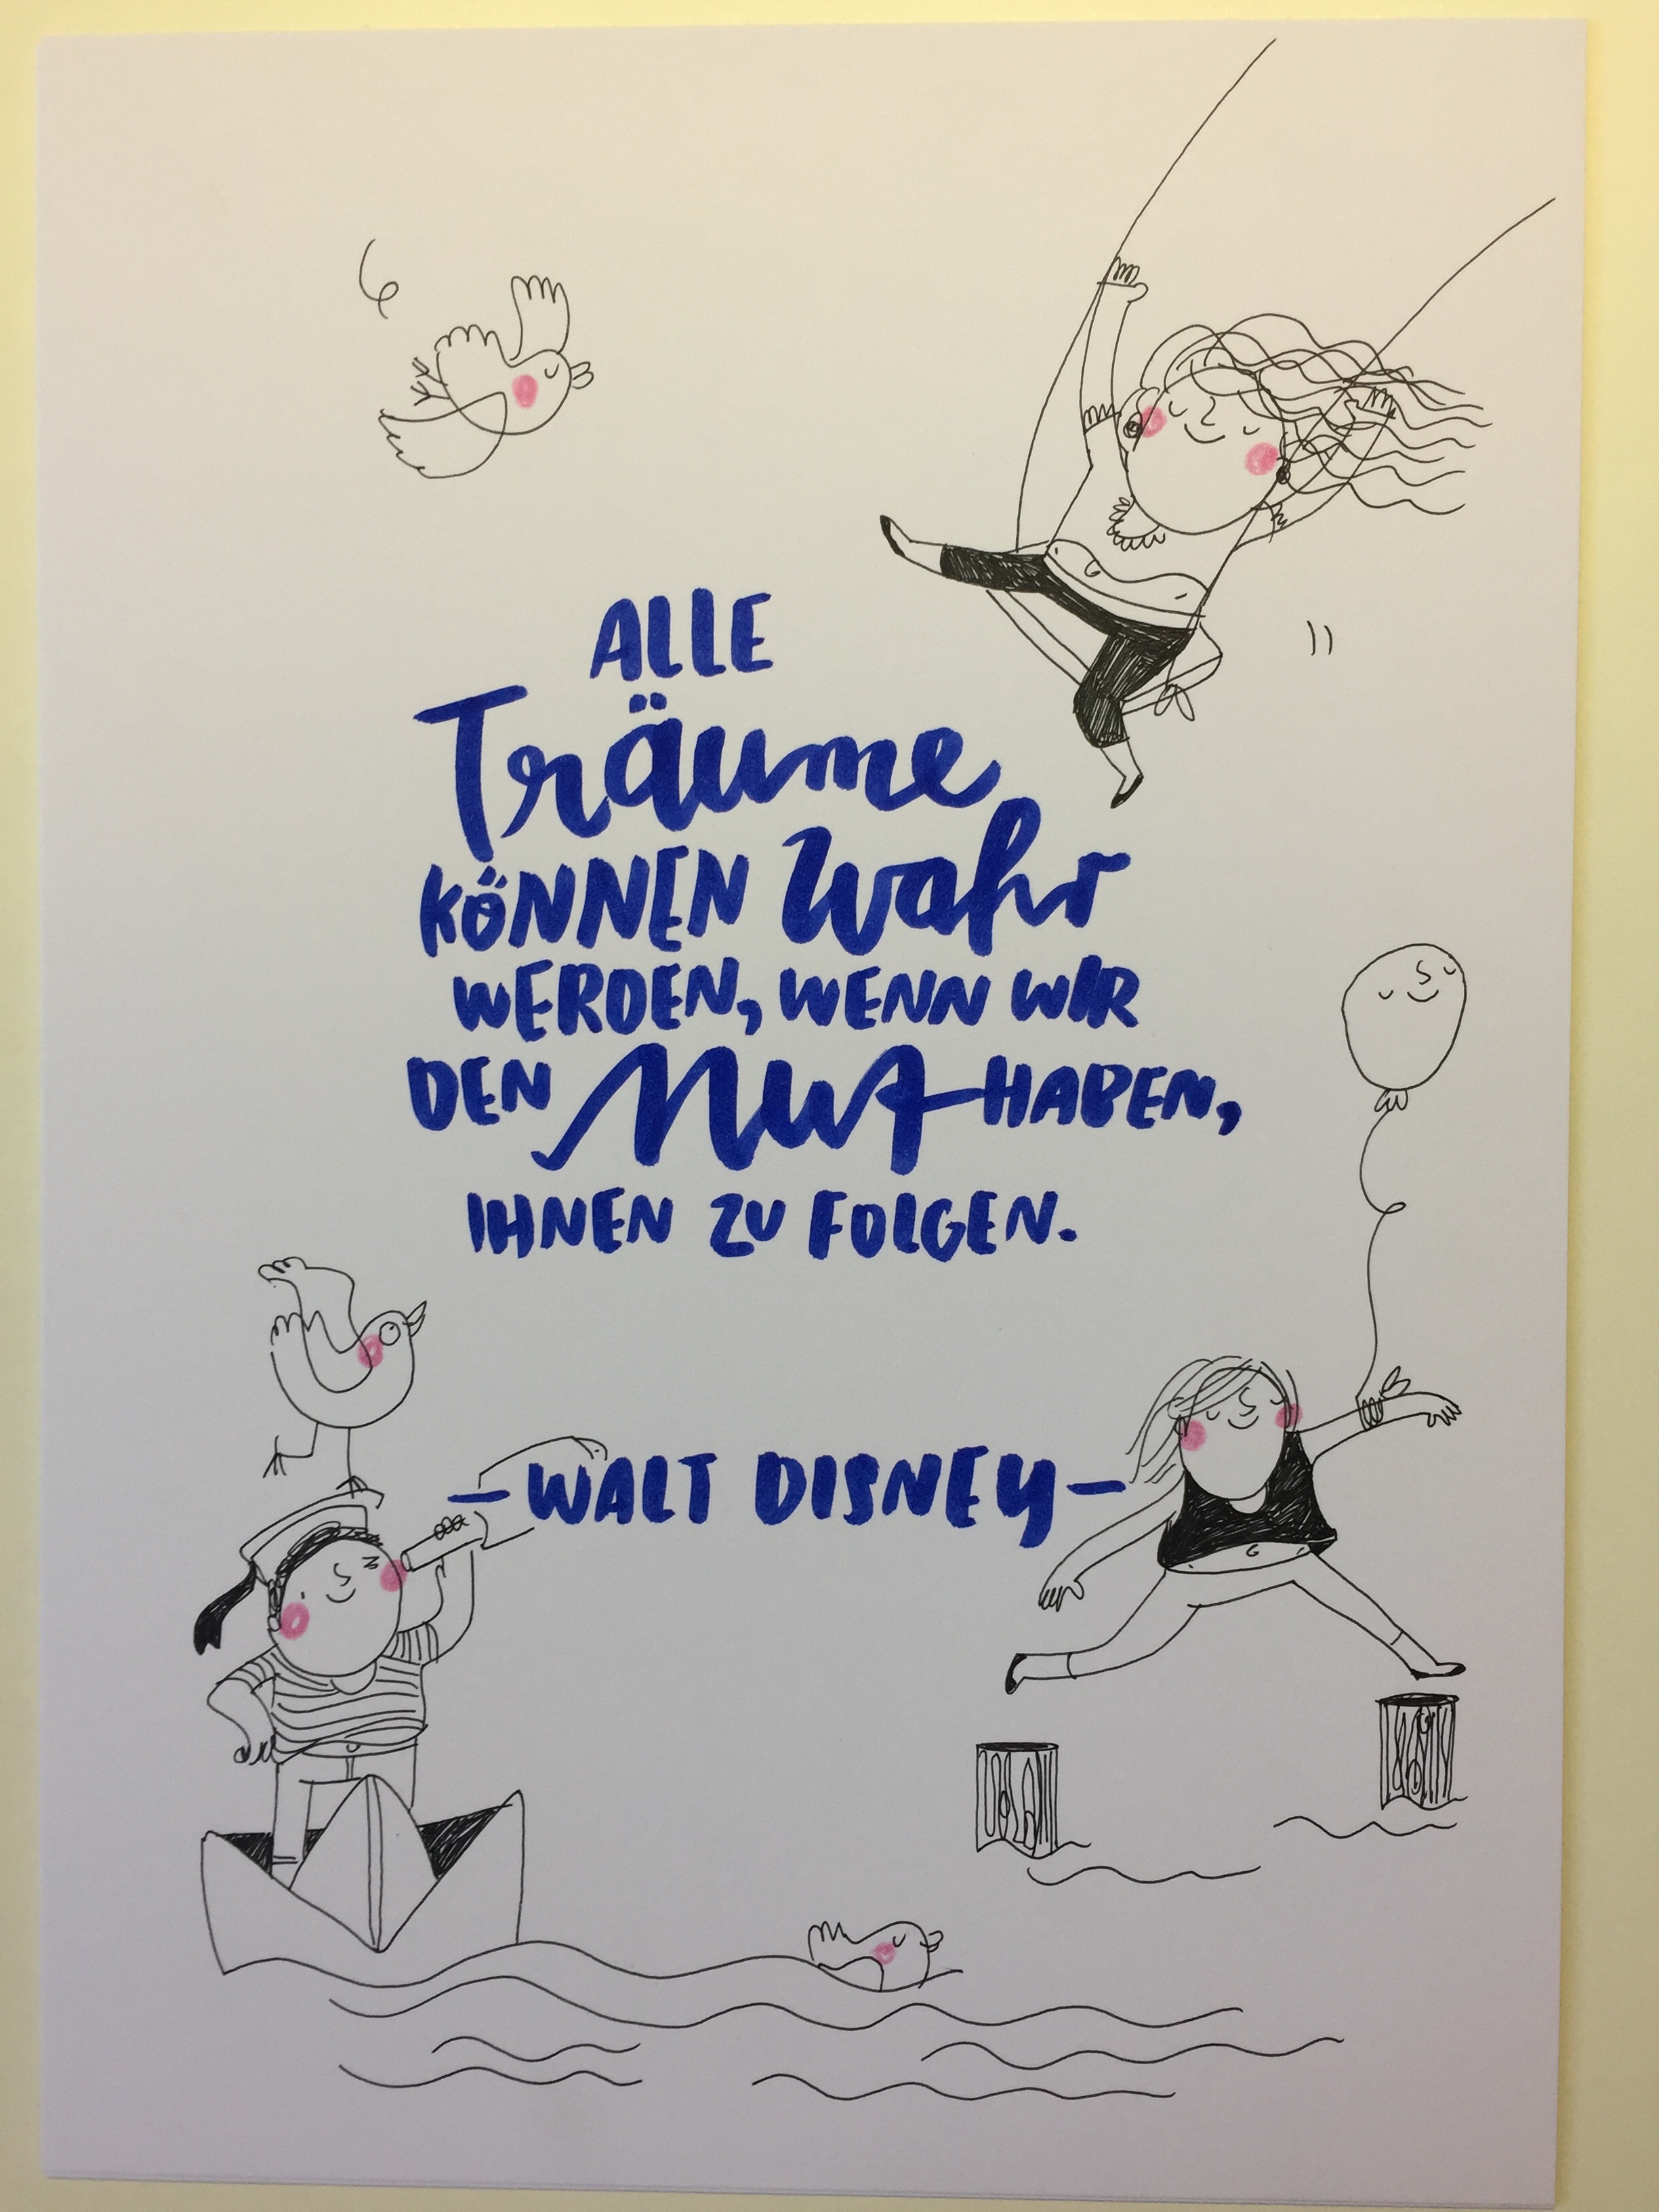 ALLE
Träume
KÖNNEN Wahr
WERDEN, WENN WIR
DEN Mut HABEN,
IHNEN ZU FOLGEN.
-WALT DISNEY-